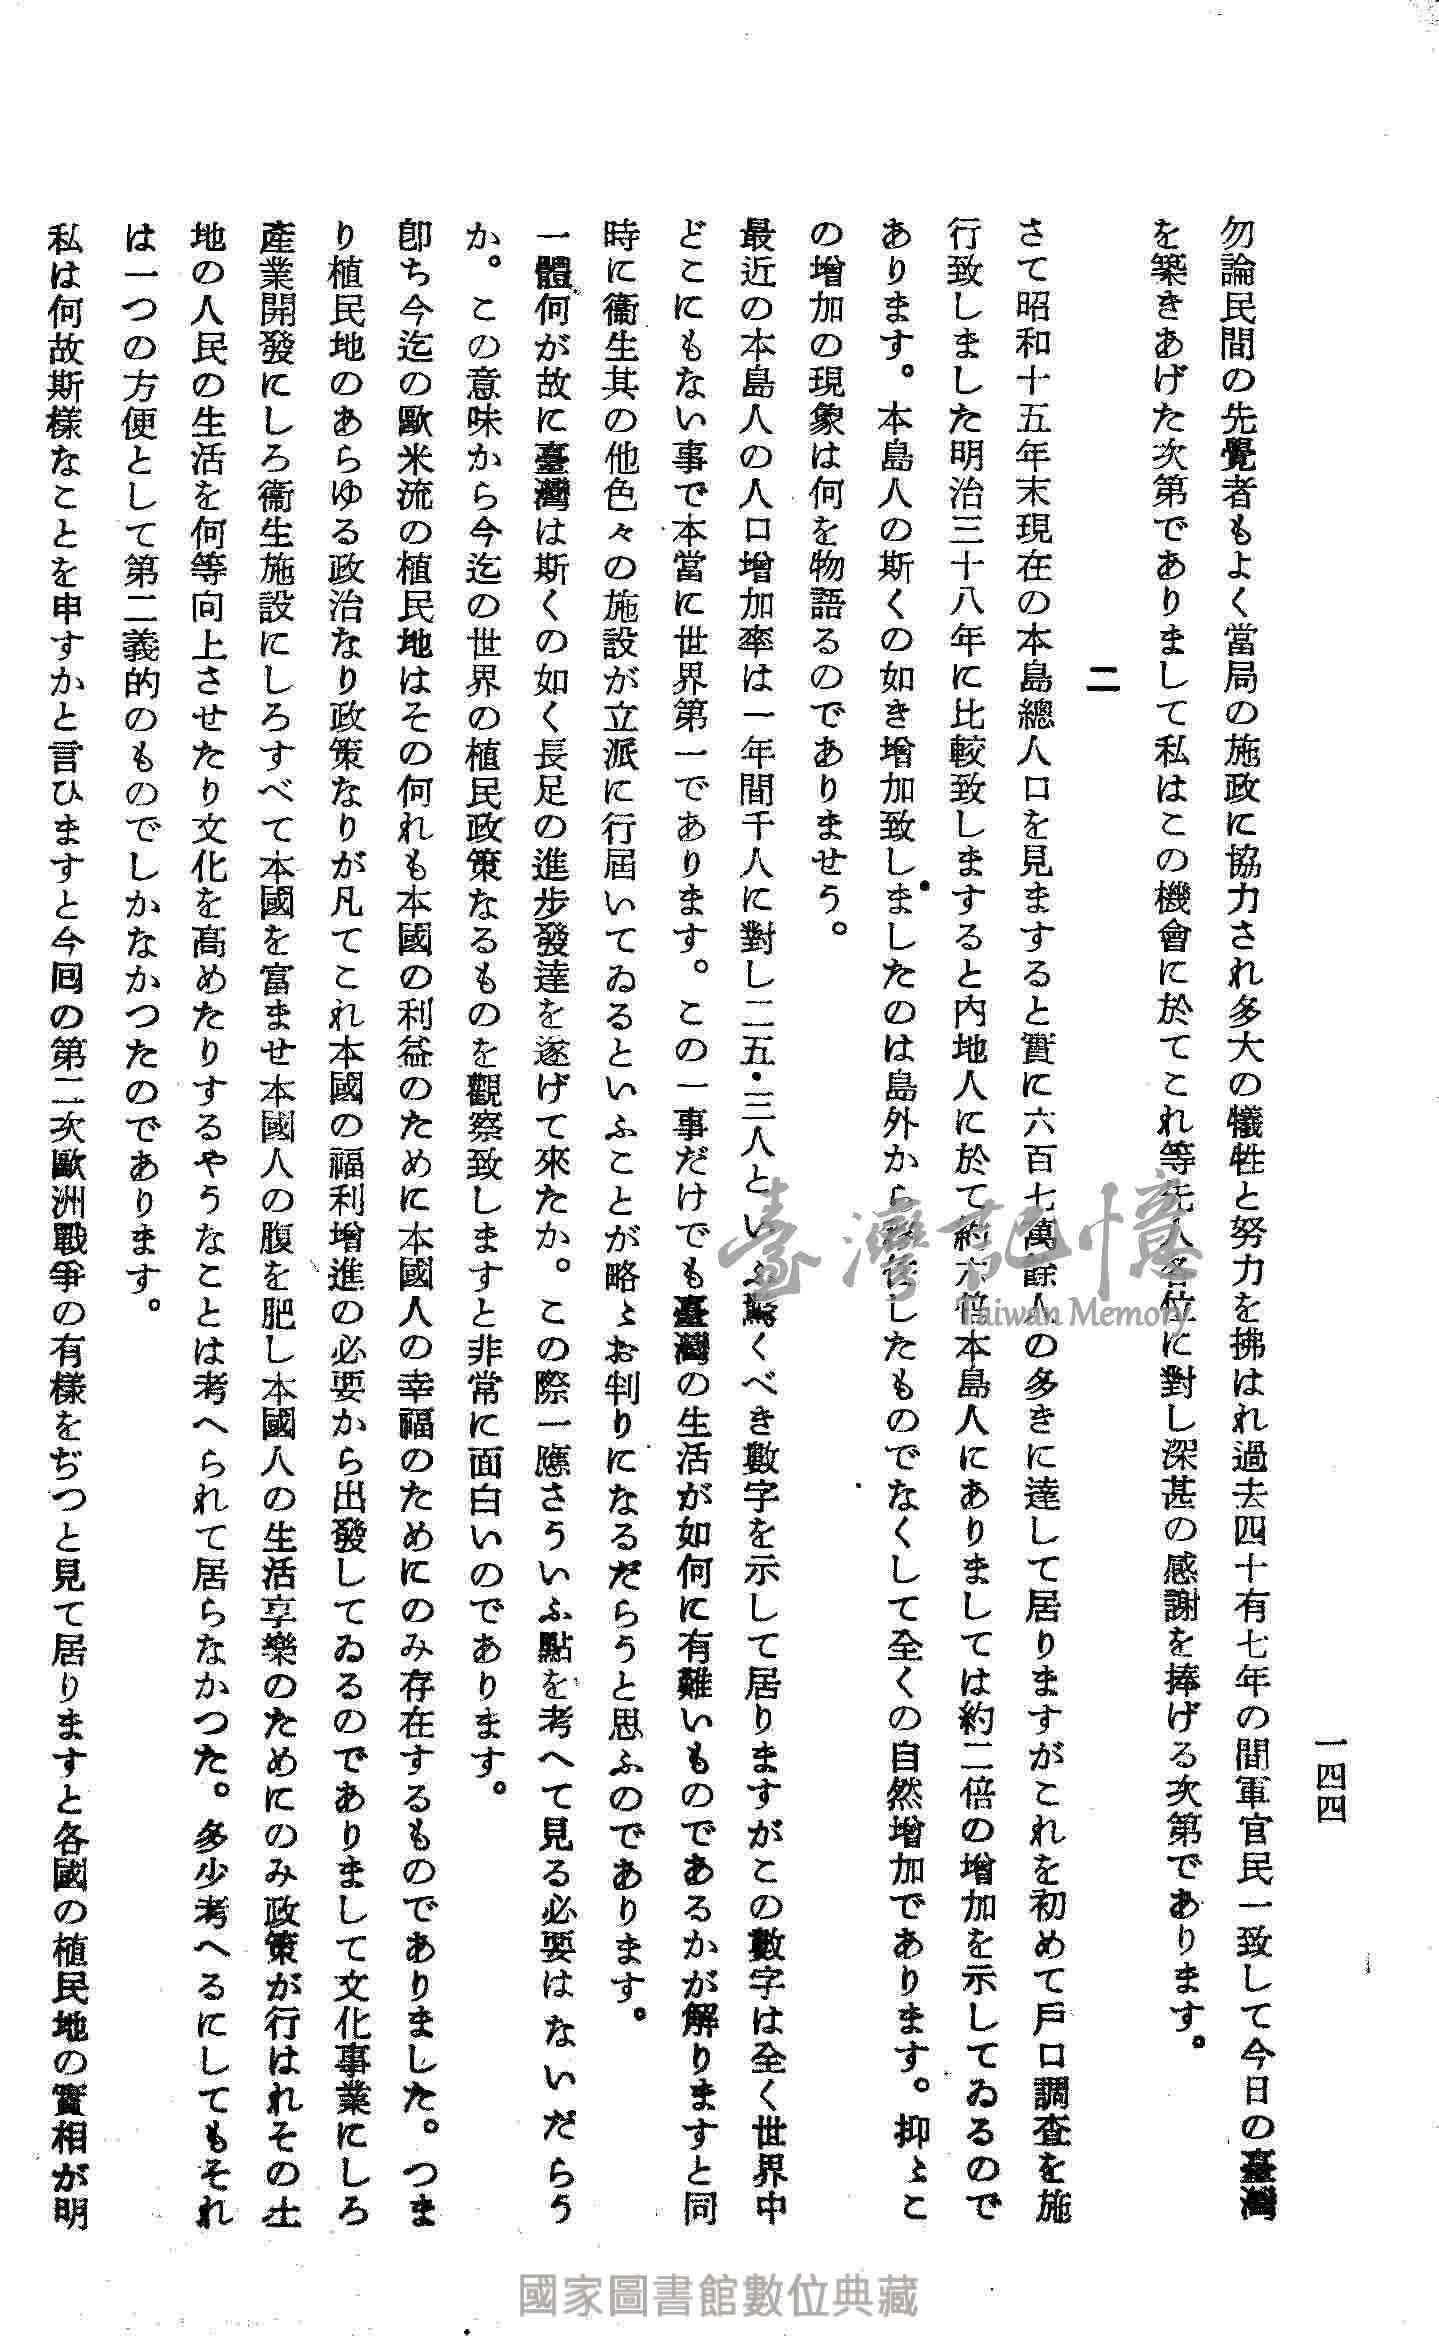 一四四
勿論民間の先覺者もよく當局の施政に協力され多大の犧牲と努力を拂はれ過去四十有七年の間軍官民一致して今日の臺灣
を築きあげた次第でありまして私はこの機會に於てこれ等先人各位に對し深甚の感謝を捧げる次第であります。
二
さて昭和十五年末現在の本島總人口を見ますると實に六百七萬餘人の多きに達して居りますがこれを初めて戶口調査を施
行致しました明治三十八年に比較致しますると内地人に於て約六倍本島人にありましては約二倍の增加を示してゐるので
あります。本島人の斯くの如き增加致しましたのは島外から移住したものでなくして全くの自然增加であります。抑〻こ
の增加の現象は何を物語るのでありませう。
最近の本島人の人口增加率は一年間千人に對し二五・三人といふ驚くべき數字を示して居りますがこの數字は全く世界中
どこにもない事で本當に世界第一であります。この一事だけでも臺灣の生活が如何に有難いものであるかが解りますと同
時に衞生其の他色々の施設が立派に行屆いてゐるといふことが略〻お判りになるだらうと思ふのであります。
一體何が故に臺灣は斯くの如く長足の進步發達を遂げて來たか。この際一應さういふ點を考へて見る必要はないだらう
か。この意味から今迄の世界の植民政策なるものを觀察致しますと非常に面白いのであります。
卽ち今迄の歐米流の植民地はその何れも本國の利益のために本國人の幸福のためにのみ存在するものでありました。つま
り植民地のあらゆる政治なり政策なりが凡てこれ本國の福利增進の必要から出發してゐるのでありまして文化事業にしろ
產業開發にしろ衞生施設にしろすべて本國を富ませ本國人の腹を肥し本國人の生活享樂のためにのみ政策が行はれその土
地の人民の生活を何等向上させたり文化を高めたりするやうなことは考へられて居らなかつた。多少考へるにしてもそれ
は一つの方便として第二義的のものでしかなかつたのであります。
私は何故斯樣なことを申すかと言ひますと今囘の第二次歐洲戰爭の有樣をぢつと見て居りますと各國の植民地の實相が明
臺灣記憶
Taiwan Memory
國家圖書館數位典藏